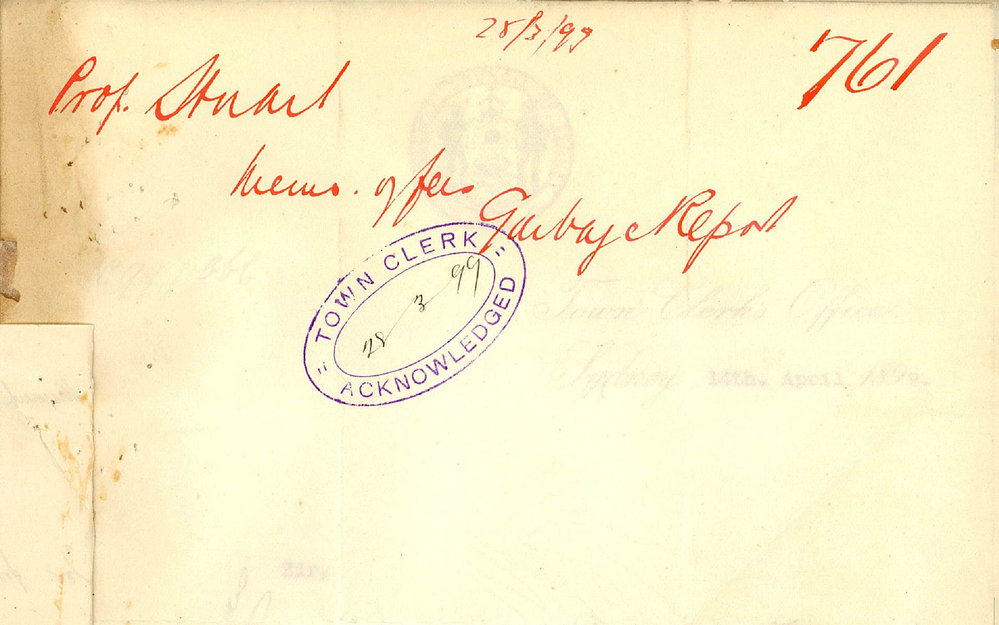 28/3/99
761
Prof. Stuart
Memo. of fees
Garbage Report
"TOWN CLERK"
28 3 99
ACKNOWLEDGED
Town Clerk's Office
Sydney 14th. April 1899.
Sir,